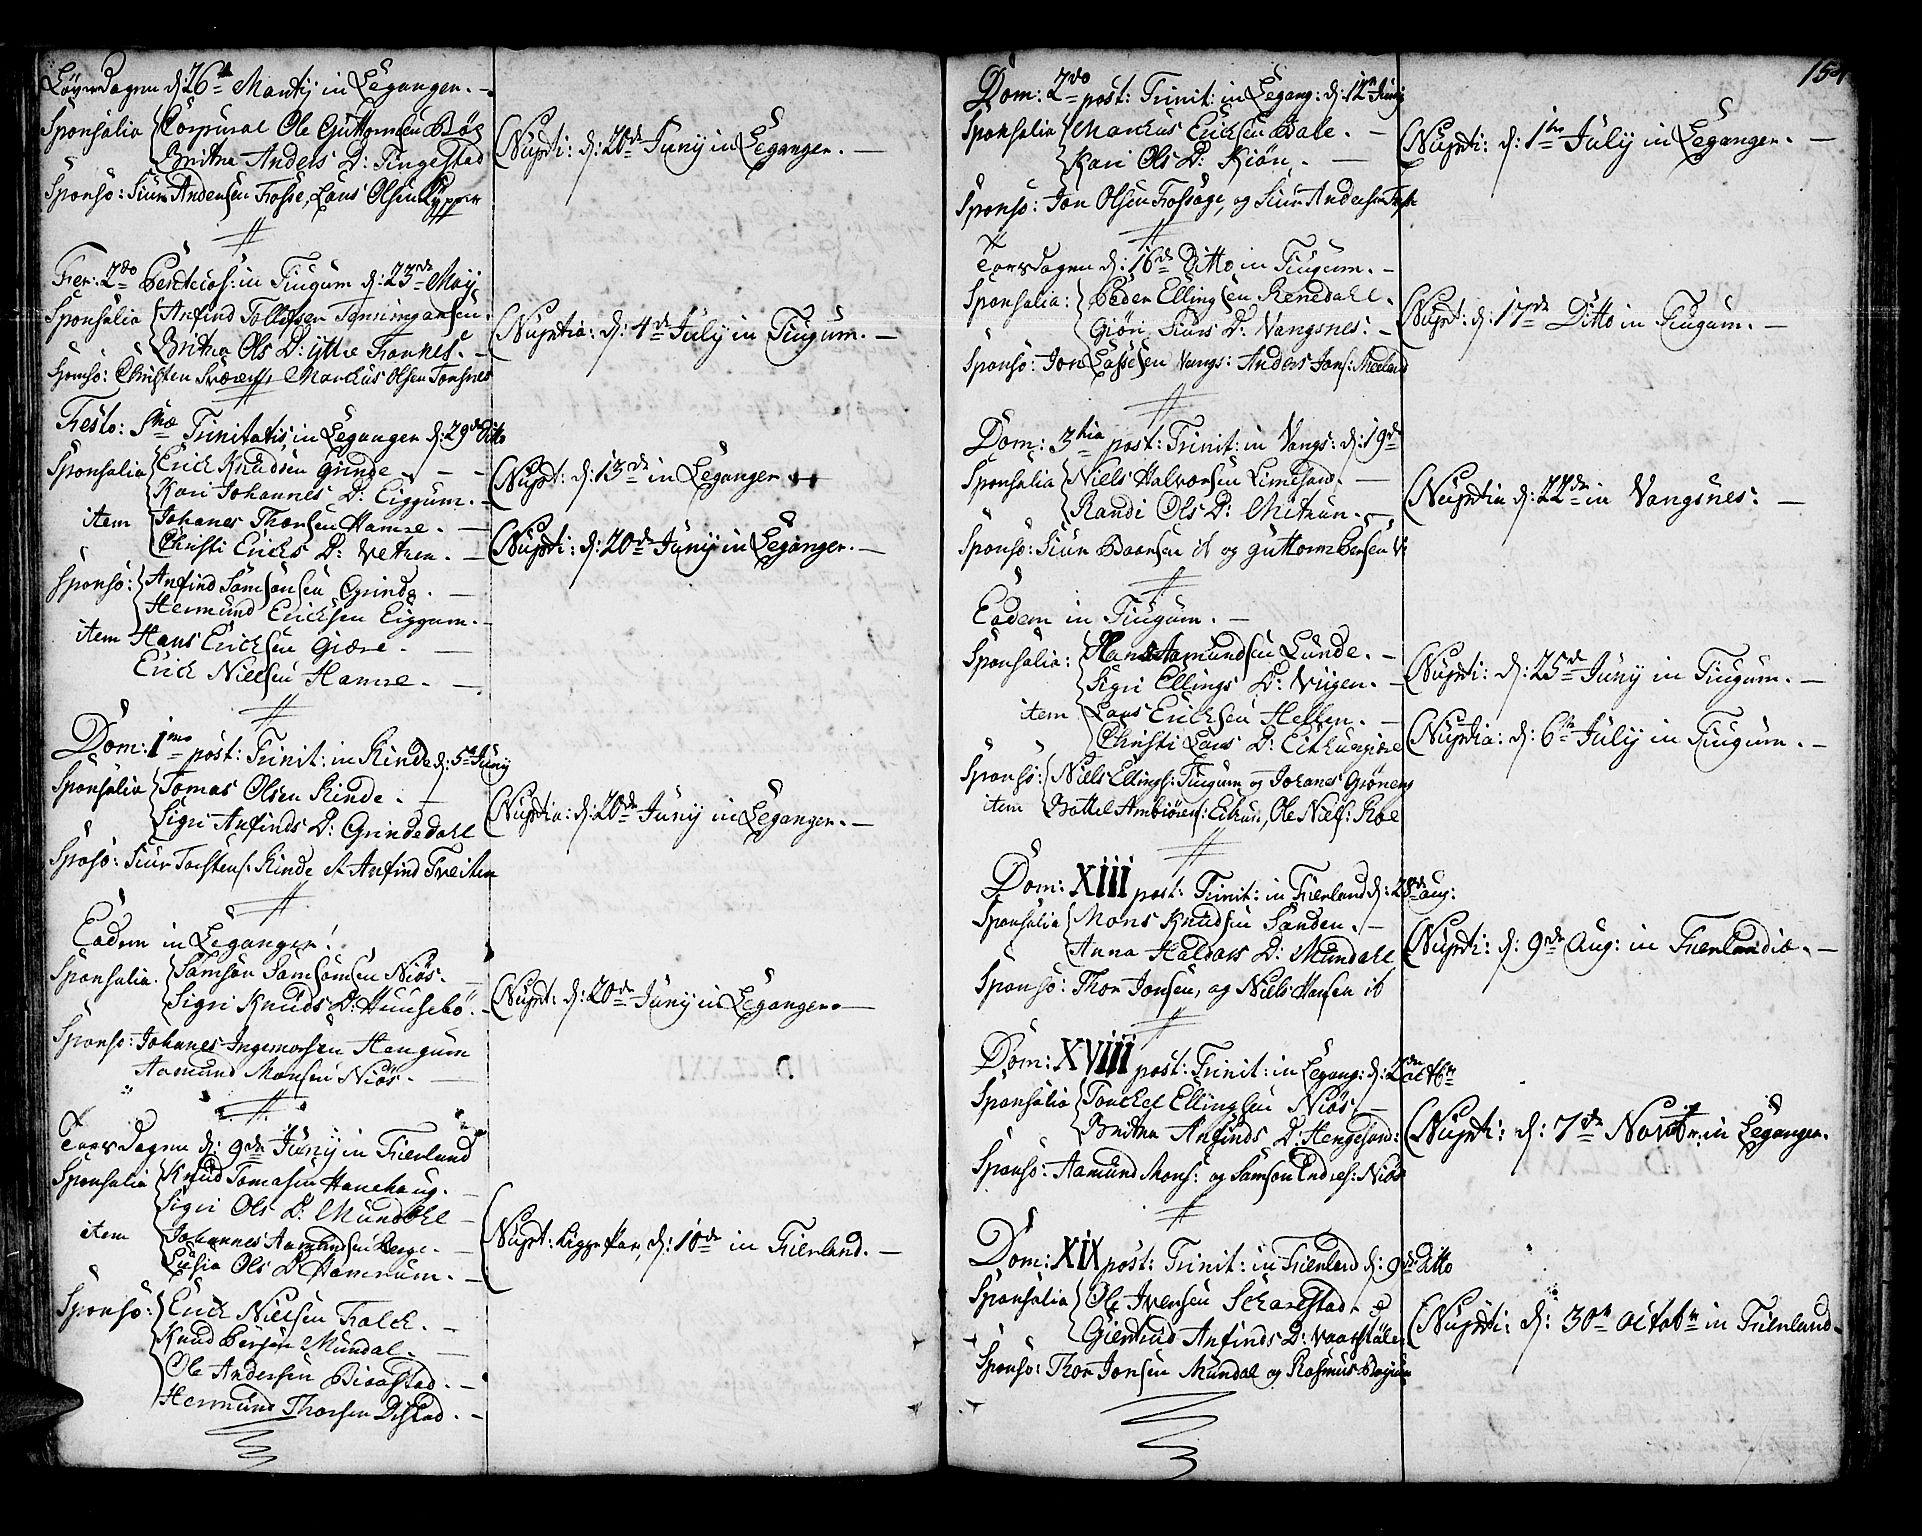 Løverdagen d: 26de Martij in Leganger. -
Sponsalia Corporal Ole Guttormsen Bøe
Britha Anders D: Tingestad
Sponso: Siur Andersen Fosse, Lars Olsen
Nupti: d: 20de Junij in Leganger. -
Fer: 2do Pentecos: in Tiugum d: 23de Maij
Sponsalia Anfind Tollefsen
Britha Ols D: yttre Fornes. -
Sponso: Christen Marckus Olsen
Nuptia: d: 4de Julij in Tiugum. -
Festo: Trinitatis in Leganger d: 29de Ditto
Sponsalia Erick Knudsen Grinde. -
Kari Johannes D: Eiggum. -
item Johanes Thorsen Hamre. -
Christi Ericks D: Vetren. -
Sponso: Anfind Samsonsen Grinde. -
Hermund Ericksen Eiggum. -
item Hans Ericksen Giære. -
Erick Nielsen Hamre. -
Nupt: d: 13de in Leganger
Nupti: d: 20de Junij in Leganger. -
Dom: 1mo post: Trinit: in Rinde d: 5te Junij
Sponsalia Tomas Olsen Rinde. -
Sigri Anfinds D: Grindedahl
Sposo: Siur Torstens: Rinde et Anfind Tveiten
Nuptia: d: 20de Junij in Leganger. -
Eodem in Leganger!
Sponsalia. Samson Samsonsen Niøs. -
Sigri Knuds D: Huusebö. -
Sponso: Johanes Ingemorsen Haugum
Aamund Monsen Niøs. -
Nupt: d: 20de Junij in Leganger. -
Torsdagen d: 9de Junij in Fierland
Sponsalia Knud Tomasen Hanehaug. -
Sigri Ols D: Mundahl -
item Johannes Aamundsen Berge. -
Lusia Ols D: Hamrum. -
Sponso: Erick Nielsen Falck. -
Knud Persen Mundal. -
Ole Andersen Bioastad. -
Hermund Thorsen Distad. -
Nupt: begge Par, d: 10de in Fierland. -
154
Dom: 2do post: Trinit: in Legang: d: 12te Junij
Sponsalia Marckus Ericksen Bale. -
Kari Ols D: Kiørn. -
Sponso: Jon Olsen Fossøge, og Siur Andersen
Nupti: d: 1te Julij in Leganger. -
Torsdagen d: 16de Ditto in Tiugum. -
Sponsalia: Peder Ellingsen Renedahl. -
Giøri Siurs D: Vangsnes: -
Sponso: Jon Lassesen Vangs: Anders Jons:
Nupt: d: 17de Ditto in Tiugum. -
Dom: 3tia post: Trinit: in Vangs: d: 19de
Sponsalia Niels Halvorsen Limesand. -
Randi Ols D: -
Sponso: Siur Baarsen ib og Guttorm Persen
Nuptia d: 22de in Vangsnes: -
Eodem in Tiugum. -
Sponsalia: Hans Aamundsen Lunde. -
Sigri Ellings D: Viigen. -
item Lars Ericksen Hellen. -
Christi Lars D:
Sponso: Niels Ellings: Tiugum og Johanes
item Bottel Ambiørns: Eitrun, Ole Niels: Roe
Nupti: d: 25de Junij in Tiugum. -
Nuptia: d: 6te Julij in Tiugum. -
Dom: XIII post: Trinit: in Fierland d: 28de aug:
Sponsalia Mons Knudsen Sanden. -
Anna Haldors D: Mundahl
Sponso: Thor Jonsen, og Niels Hansen ib
Nupti: d: 9de Aug: in Fierlandia. -
Dom: XVIII post: Trinit: in Legang: d: 2den octbr
Sponsalia Torckel Ellingsen Niøs. -
Britha Anfinds D: Hengesand:
Sponso: Aamund Mons: og Samson Endres: Niøs
Nupti: d: 7de Novbr: in Leganger.
Dom: XIX post: Trinit: in Fierland d: 9de Ditto
Sponsalia Ole Ivensen Scharestad.
Giertrud Anfinds D:
Sponso: Thor Jonsen Mundal og Rasmus
Nupti: d: 30te octobr in Fierland. -